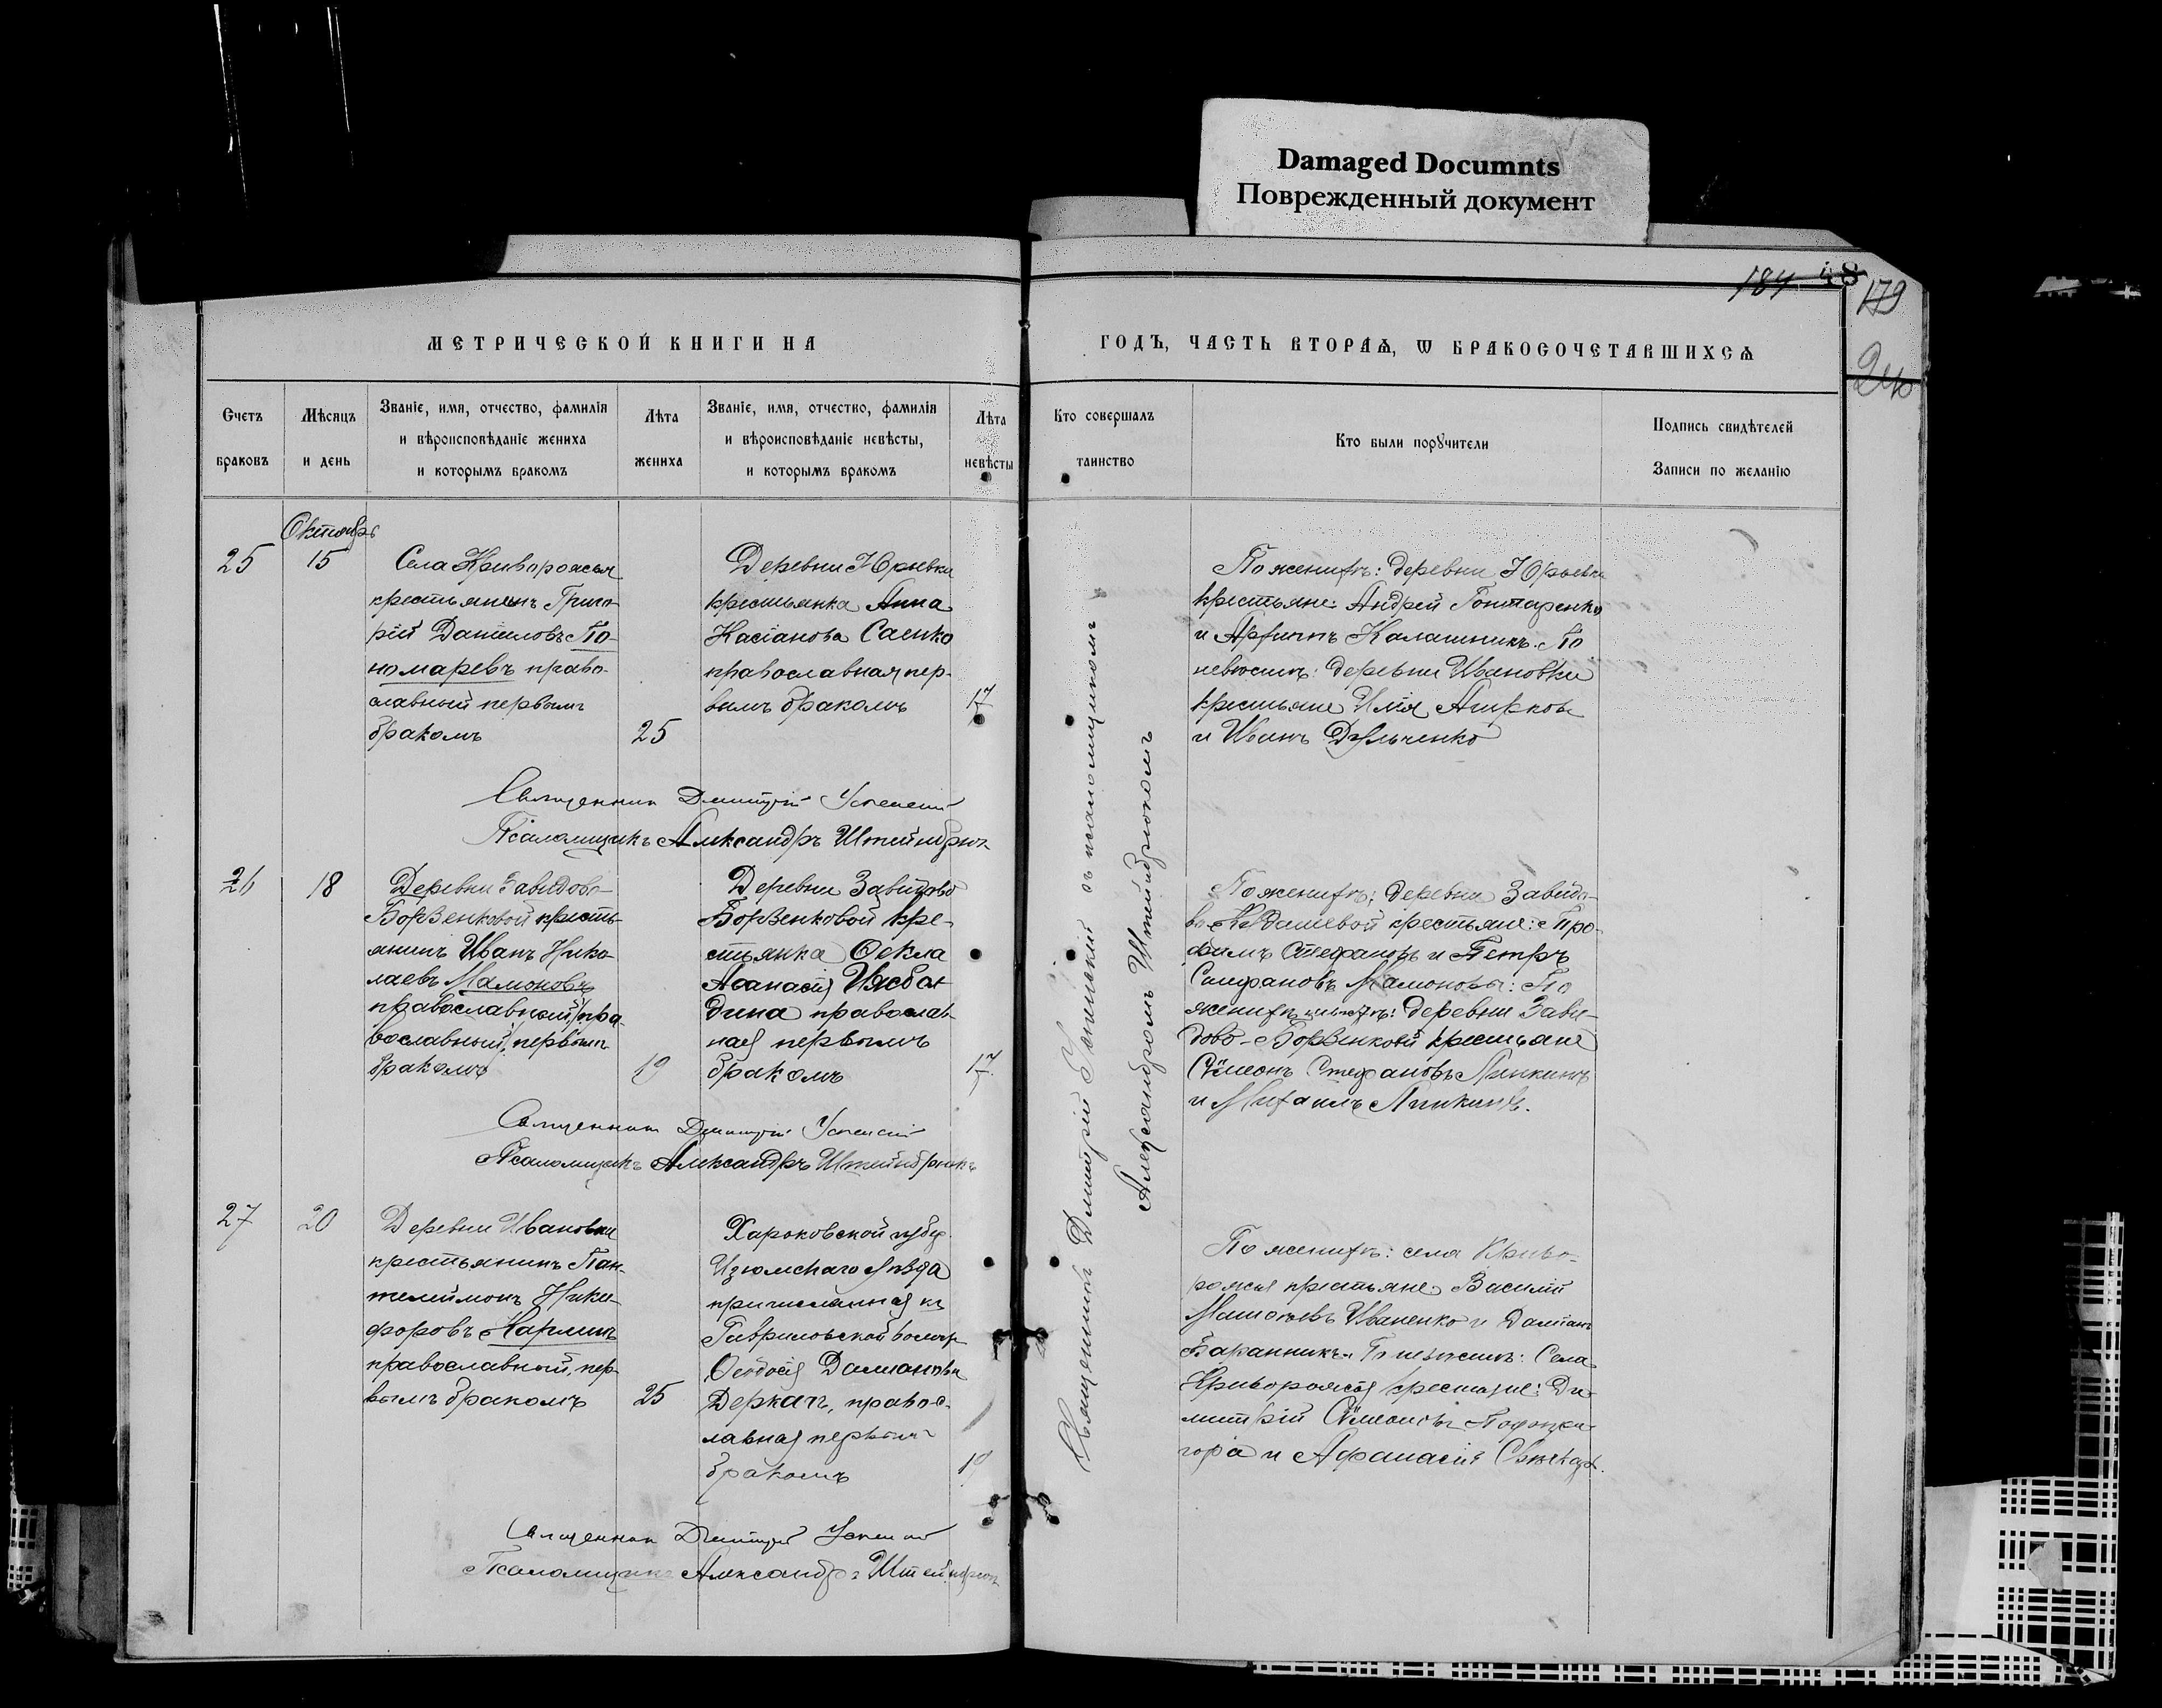 Damaged Documnts
Поврежденный документ
184
179
МЕТРИЧЕСКОЙ КНИГИ НА
ГОДЪ, ЧАСТЬ ВТОРАѦ, Ѡ БРАКОСОЧЕТАВШИХСѦ
Счетъ
браковъ
Мѣсяцъ
и день
Званіе, имя, отчество, фамилія
и вѣроисповѣданіе жениха
и которымъ бракомъ
Лѣта
жениха
Званіе, имя, отчество, фамилія
и вѣроисповѣданіе невѣсты,
и которымъ бракомъ
Лѣта
невѣсты
Кто совершалъ
таинство
Кто были порꙋчители
Подпись свидѣтелей
Записи по желанію
Октябрь
25
15
Села Криворожья
крестьянинъ Григо-
рій Даніиловъ По-
номаревъ право-
славный первымъ
бракомъ
25
Деревни Юрьевки
крестьянка Анна
Касіанова Саенко
православная пер-
вымъ бракомъ
17
По женихѣ: деревни Юрьевки
крестьяне: Андрей Гонтаренко
и Архипъ Калашникъ. По
невѣстѣ: деревни Ивановки
крестьяне Илія
и Иванъ
Священникъ Димитрій Успенскій
Псаломщикъ Александръ Штейнбрюкъ
26
18
Деревни Завидово-
Борзенковой кресть-
янинъ Иванъ Нико-
лаевъ Мамоновъ
православный, пра-
вославный, первымъ
бракомъ
19
Деревни Завидово
Борзенковой кре-
стьянка Ѳекла
Аѳанасія
дина православ-
ная первымъ
бракомъ
17
По женихѣ: деревни Завидо-
во-Кудашевой крестьяне: Тро-
фимъ Стефановъ и Петръ
Стефановъ Мамоновы: По
женихѣ невѣстѣ: деревни Зави-
дово-Борзенковой крестьяне
Сѵмеонъ Стефановъ Липкинъ
и Михаилъ Липкинъ.
Священникъ Димитрій Успенскій
Псаломщикъ Александръ Штейнбрюкъ
27
20
Деревни Ивановки
крестьянинъ Пан-
телеймонъ Ники-
форовъ Карлинъ
православный, пер-
вымъ бракомъ
25
Харьковской губер.
Изюмскаго уѣзда
причисленная къ
Гавриловской волости
Ѳеодосія Даміанова
Деркачъ, правос-
лавная первымъ
бракомъ
19
По женихѣ: села Криво-
рожья крестьяне Василій
Иваненко и Даміанъ
Баранникъ. По невѣстѣ: Села
Криворожья крестьяне: Ди-
митрій Сѵмеоновъ
гора и Афанасій
Священникъ Димитрій Успенскій
Псаломщикъ Александръ Штейнбрюкъ
Священникъ Димитрій Успенскій съ псаломщикомъ
Александромъ Штейнбрюкомъ